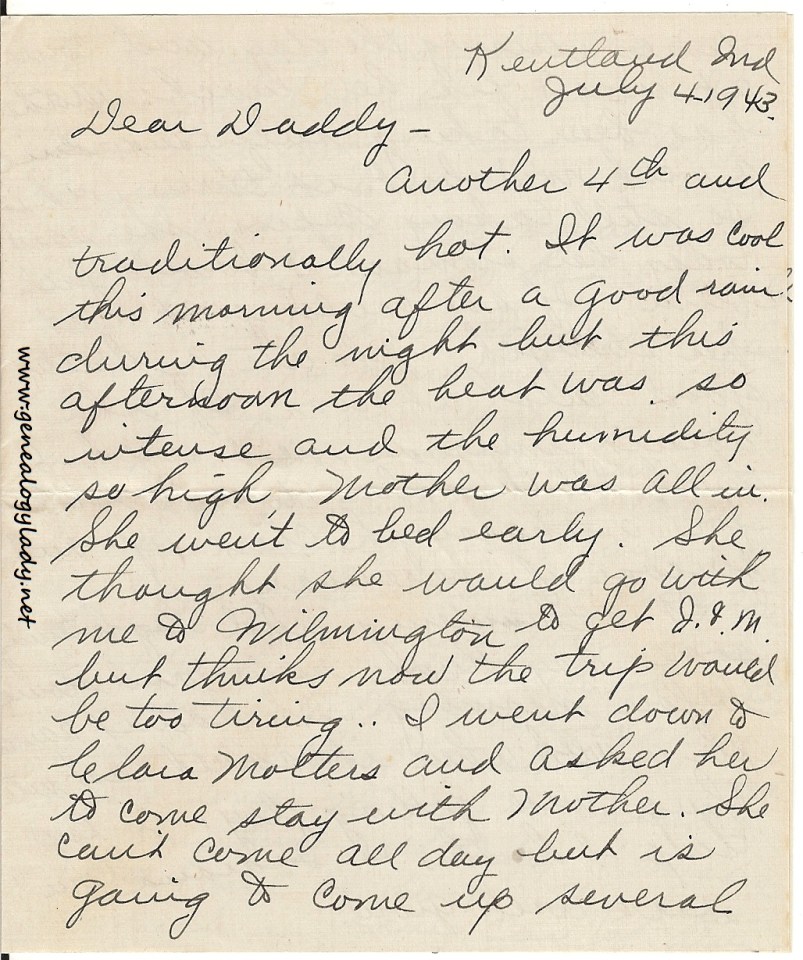 Kentland Ind
July 4-1943.
Dear Daddy-
Another 4th and
traditionally hot. It was cool
this morning after a good rain
during the night but this
afternoon the heat was so
intense and the humidity
so high, Mother was all in.
She went to bed early. She
thought she would go with
me to Wilmington to get J. & M.
but thinks now the trip would
be too tiring.. I went down to
Clara Molters and asked her
to come stay with Mother. She
can't come all day but is
going to come up several
www.genealogylady.net